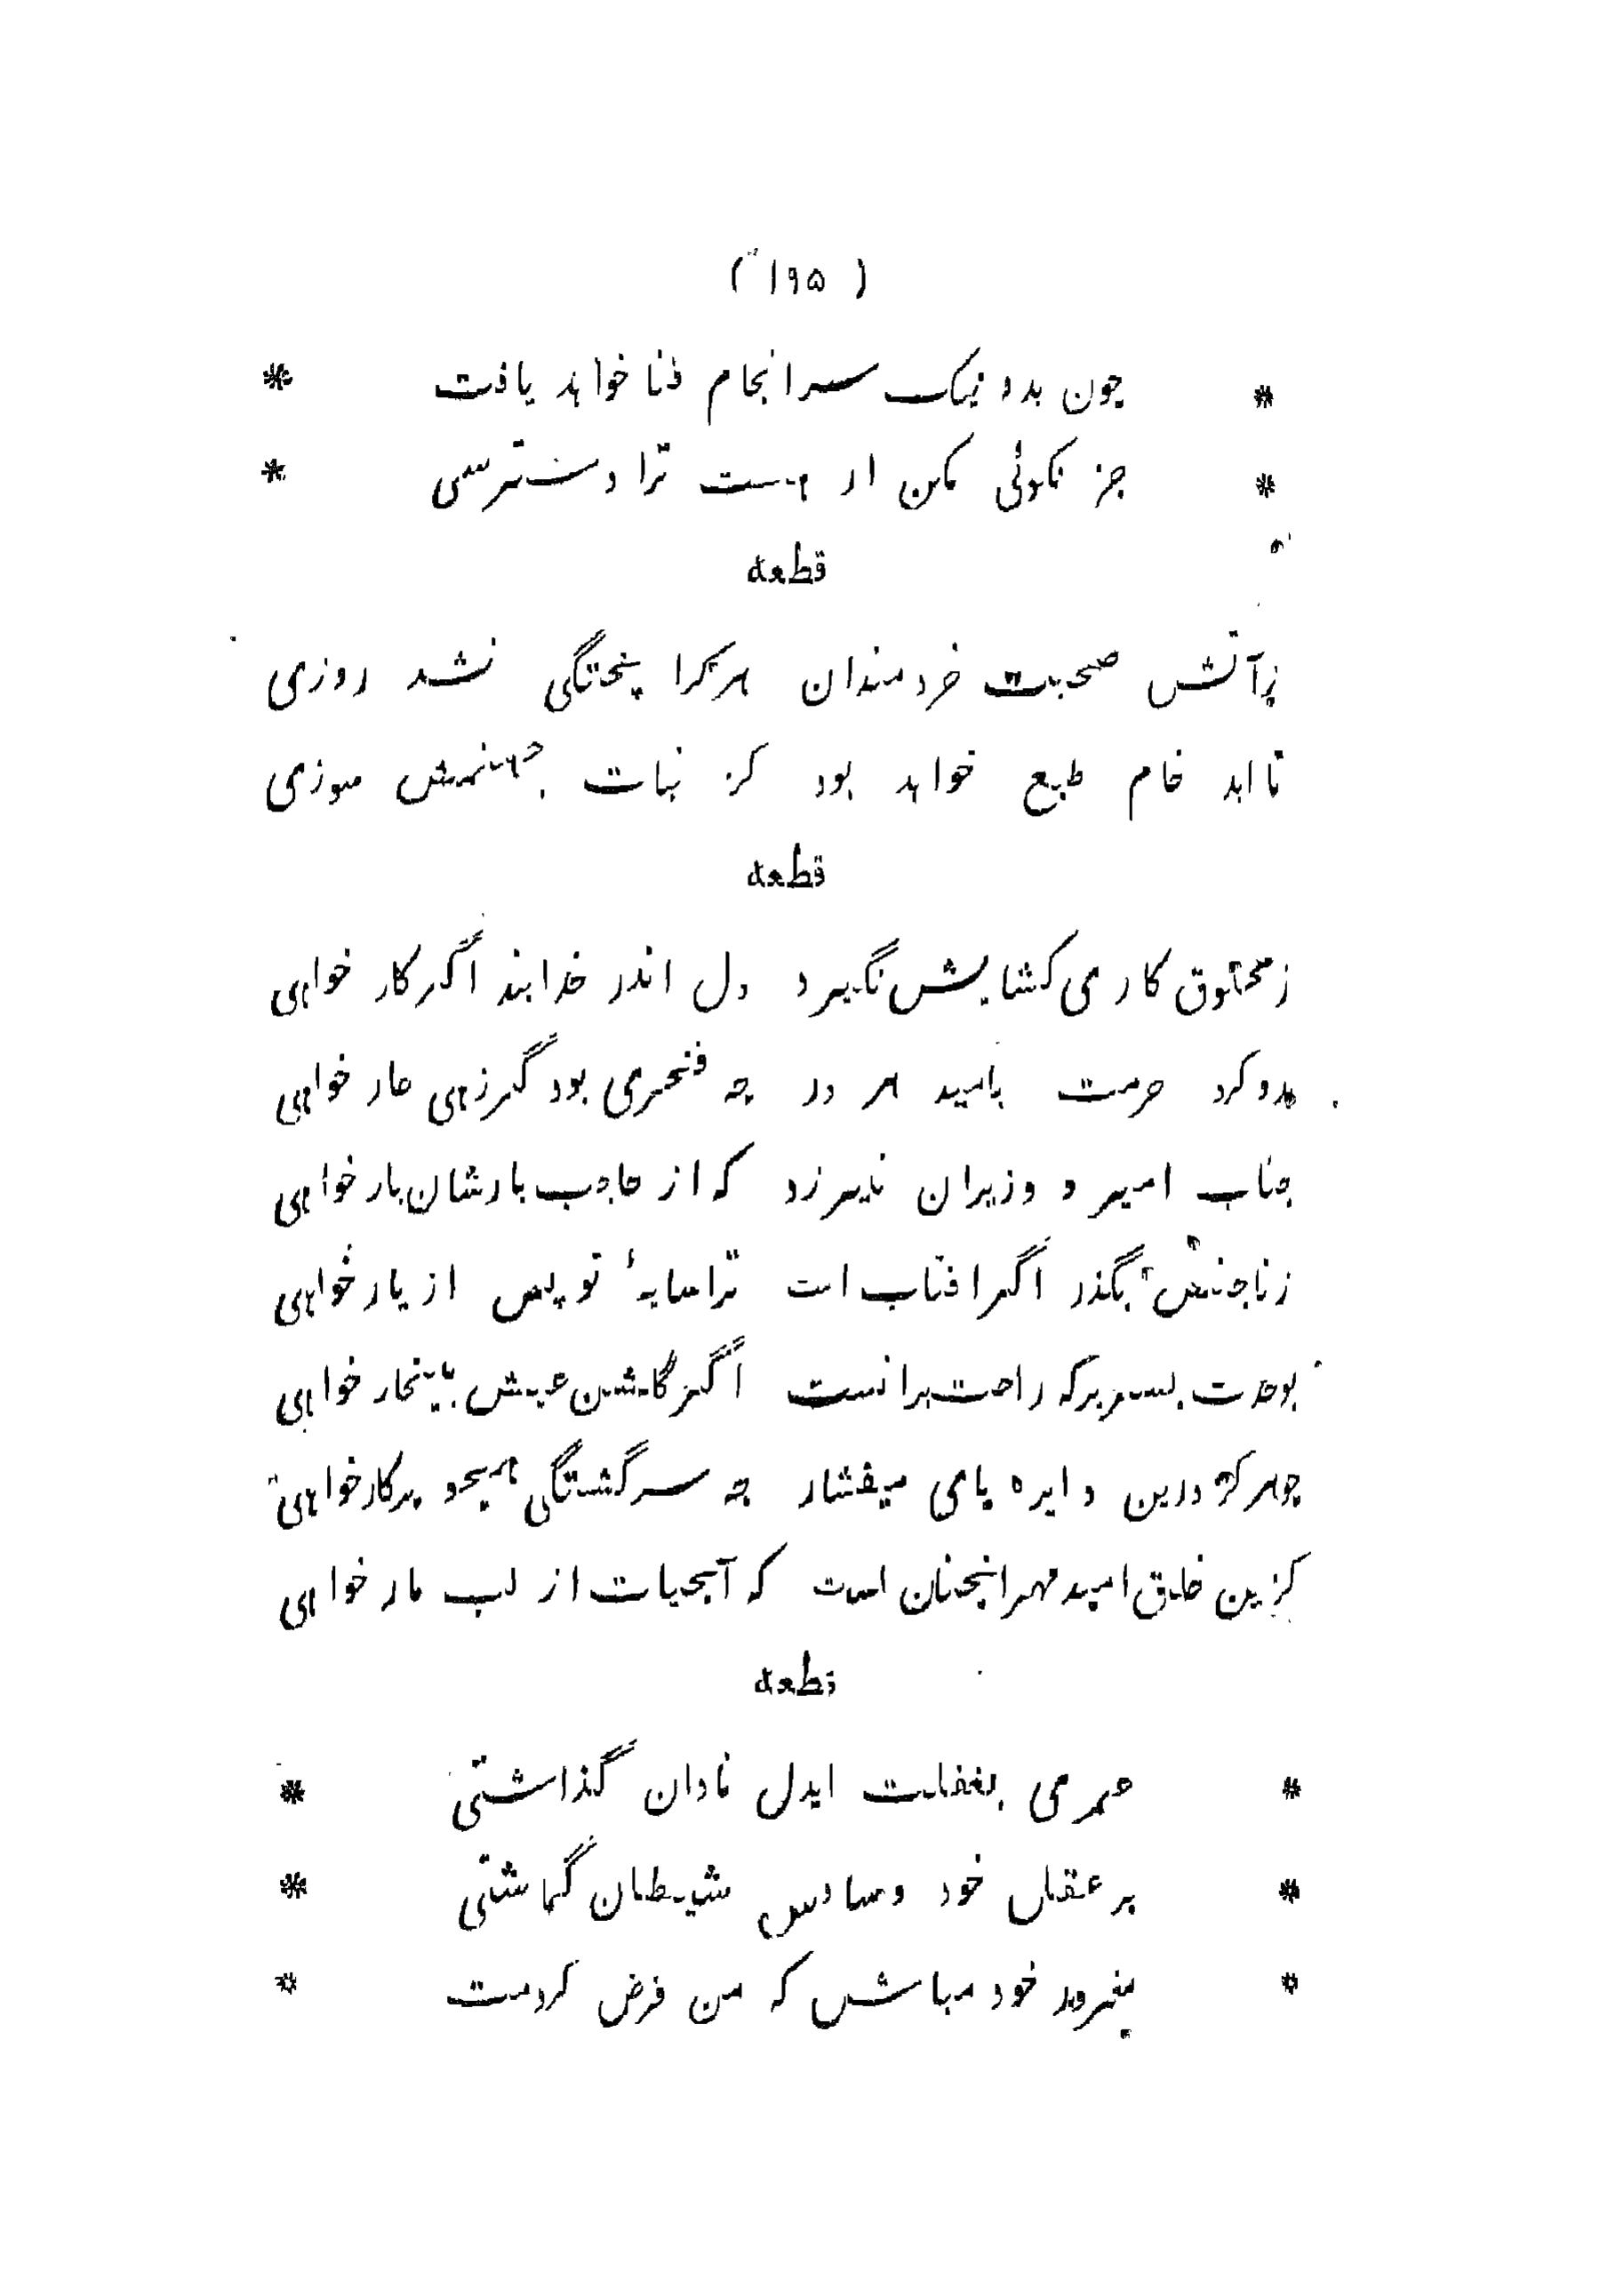 ( ۱۹۵ )
* چون بد و نیک سرانجام فنا خواهد یافت *
* جز نکوئی مکن ار هست ترا دسترسی *
قطعه
ز آتش صحبت خردمندان هرکرا پختگی نشد روزی
تا ابد خام طبع خواهد بود گر بنات جهنمش سوزی
قطعه
ز مخلوق کاری گشایش نگیرد دل اندر خدا بند اگر کار خواهی
کرد حرمت بامید هر در چه فخری بود گر زهی عار خواهی
جناب امیر و وزیران نیرزد که از حاجب بارشان بار خواهی
ز ناجنس بگذر اگر افتاب است ترا سایهٔ تو بس از یار خواهی
بوحدت بسر بر که راحت برانست اگر گلشن عیش بیخار خواهی
چو مرکز درین دایره پای میفشار چه سرگشتگی همچو پرکار خواهی
کزین خلق امید مهر انچنان است که آبحیات از لب مار خواهی
قطعه
* عمری بغفلت ایدل نادان گذاشتی *
* بر عقل خود وساوس شیطان گماشتی *
* مغرور خود مباش که من فرض کردمت *